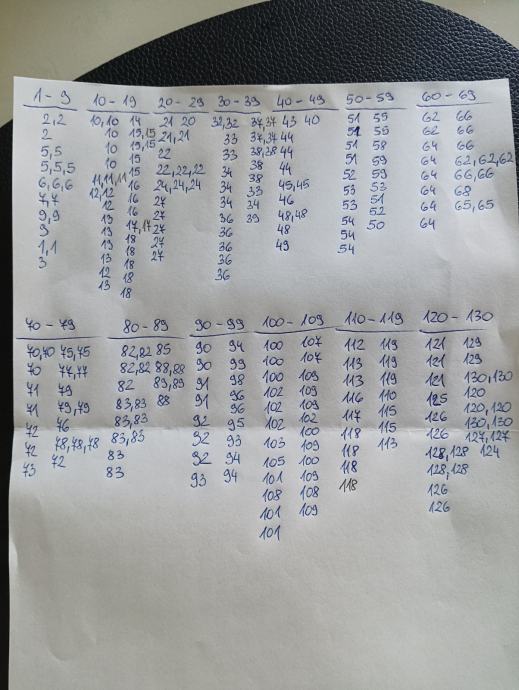 1 - 9 10 - 19 20 - 29 30 - 39 40 - 49 50 - 59 60 - 69
2,2 10,10 14 21 20 32,32 37,37 43 40 51 55 62 66
2 10 15,15 21,21 33 37,37 44 51 55 62 66
5,5 10 15,15 22 33 38,38 44 51 58 64 66
5,5,5 10 15 22,22,22 34 38 44 51 59 64 62,62,62
6,6,6 11,11,11 16 24,24,24 34 38 45,45 52 59 64 66,66
7,7 12,12 16 27 34 33 46 53 53 64 68
9,9 12 16 27 34 34 48,48 53 51 64 65,65
9 13 17,17 27 36 39 48 54 52 64
1,1 13 18 27 36 49 54 50
3 13 18 27 36 54
12 18 36
13 18
70 - 79 80 - 89 90 - 99 100 - 109 110 - 119 120 - 130
70,70 75,75 82,82 85 90 94 100 107 112 119 121 129
70 77,77 82,82 88,88 90 99 100 107 113 119 121 129
71 79 82 89,89 91 98 100 109 113 119 121 130,130
71 79,79 83,83 88 91 96 102 109 116 110 125 120
72 76 83,83 92 95 102 109 117 115 126 120,120
72 78,78,78 83,83 92 93 102 102 118 115 126 130,130
73 72 83 92 94 103 109 118 113 128,128 127,127
83 93 94 105 100 118 128,128 124
101 109 118 126
108 108 126
101 109
101